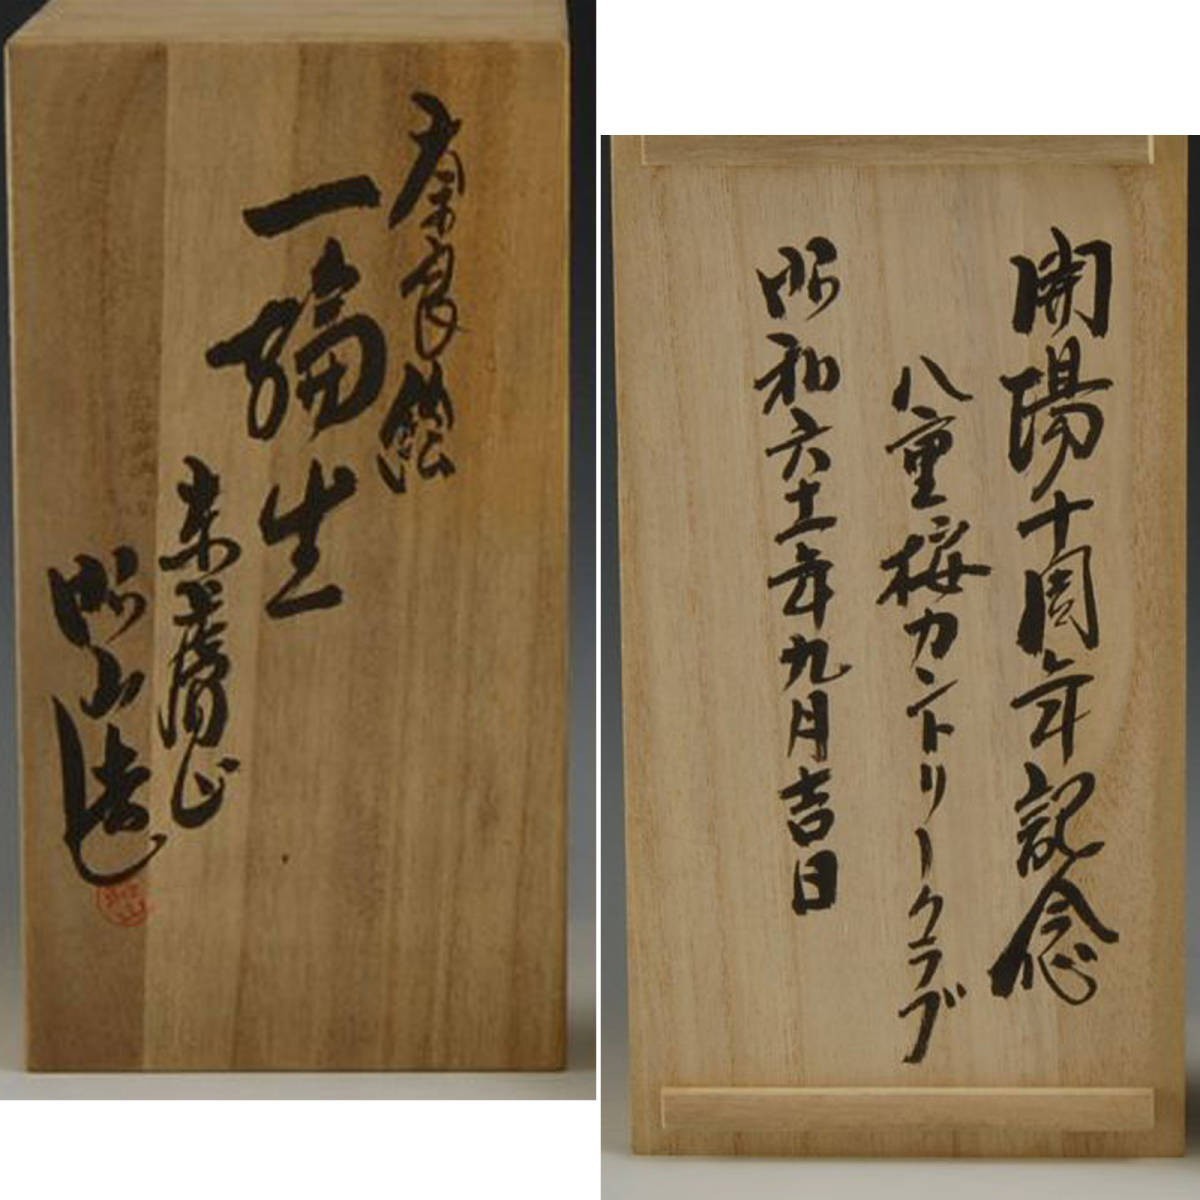 奈良絵
一輪生
赤膚山
昭山造
開場十周年記念
八重桜カントリークラブ
昭和六十二年九月吉日